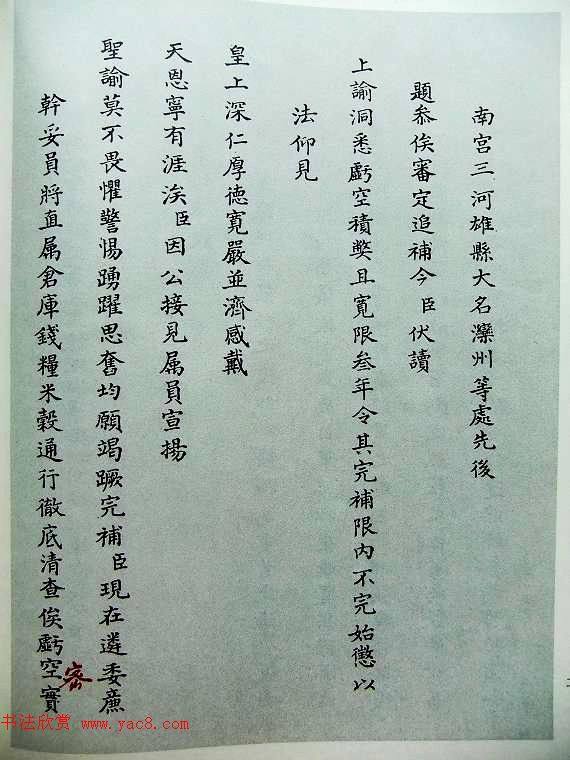 南宫三河雄縣大名灤州等處先後
題叅俟審定追補今臣伏讀
上諭洞悉虧空積獘且寬限叁年令其完補限內不完始懲以
法仰見
皇上深仁厚德寛嚴並濟感戴
天恩寧有涯涘臣因公接見属員宣揚
聖諭莫不畏懼警惕踴躍思奮均願竭蹶完補臣現在遴委廉
幹妥員將直属倉庫錢糧米穀通行徹底清查俟虧空實
密
书法欣赏 www.yac8.com